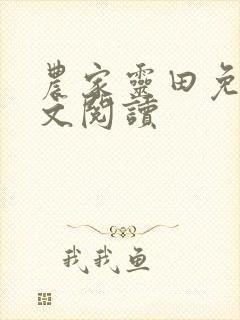 農家靈田免
文閱讀
我我鱼